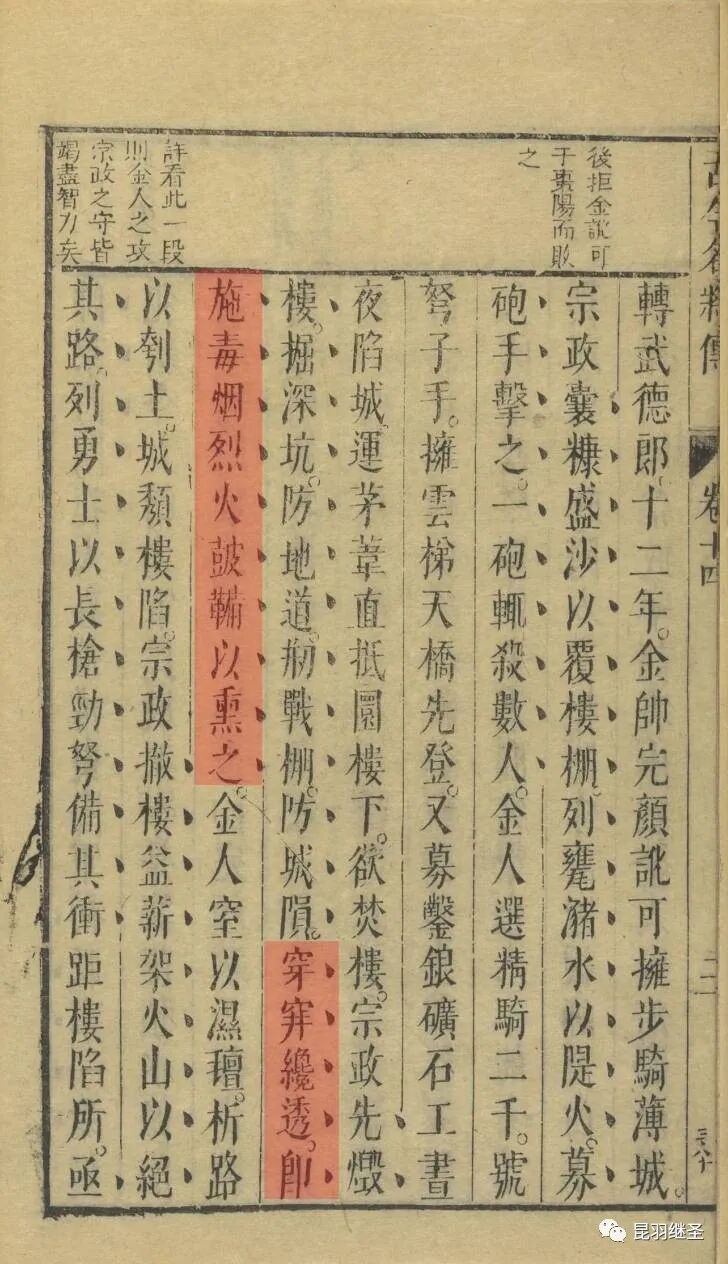 古今名將傳
卷十四
後拒金訛可
于棗陽而敗
之
轉武德郎。十二年。金帥完顏訛可擁步騎薄城。
宗政囊糠盛沙以覆樓棚。列甕瀦水以隄火。募
砲手擊之。一砲輒殺數人。金人選精騎二千。號
弩子手。擁雲梯天橋先登。又募鑿銀礦石工晝
夜陷城。運茅葦直抵圜樓下。欲焚樓。宗政先燬
樓。掘深坑。防地道。剏戰棚。防城隕。穿穽纔透。卽
施毒烟烈火皷鞴以熏之。金人窒以濕氊。析路
以刳土。城頹樓陷。宗政撤樓益薪架火山以絕
其路。列勇士以長槍勁弩備其衝。距樓陷所。亟
詳看此一段
則金人之攻
宗政之守皆
竭盡智力矣
昆羽继圣